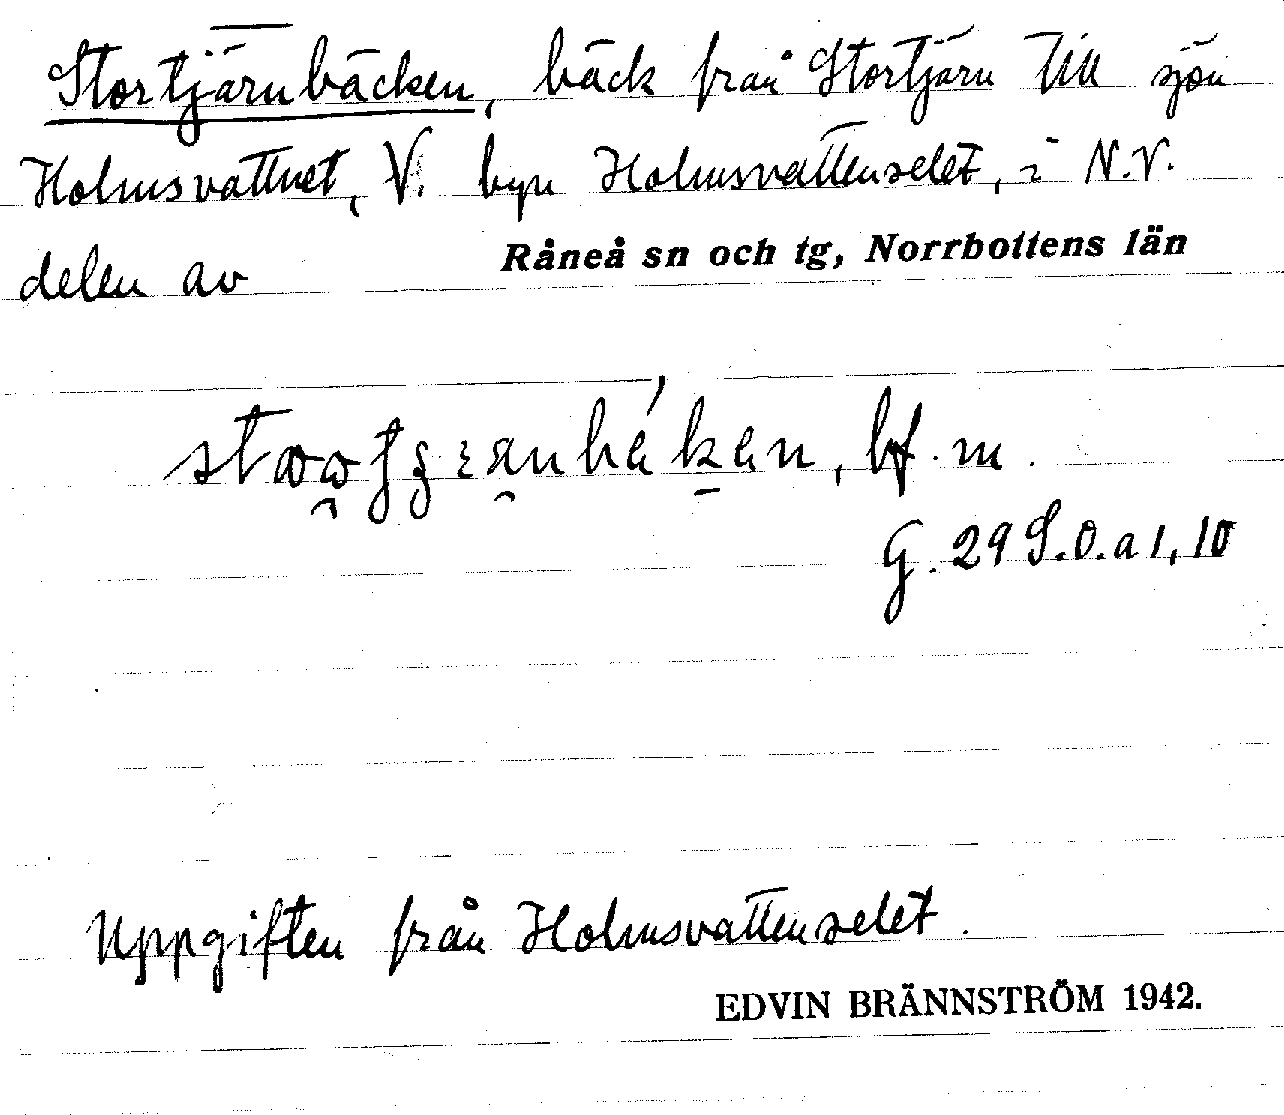 Stortjärnbäcken, bäck från Stortjärn till sjön
Holmsvattnet, V. byn Holmsvattenselet, i N.V.
delen av Råneå sn och tg, Norrbottens län
bf. m.
G. 29 S.O. a 1, 10
Uppgiften från Holmsvattenselet.
EDVIN BRÄNNSTRÖM 1942.